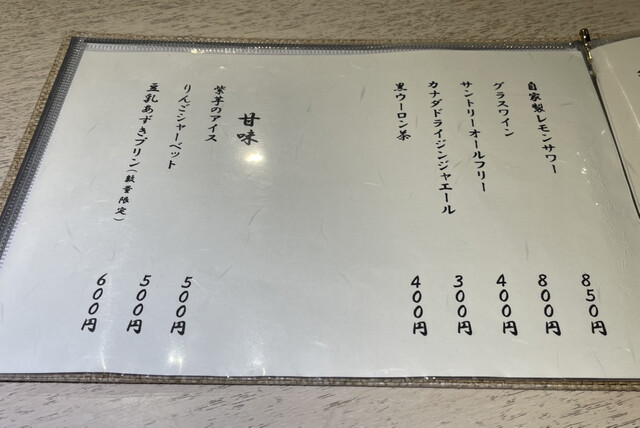 自家製レモンサワー 850円
グラスワイン 800円
サントリーオールフリー 400円
カナダドライジンジャエール 300円
黒ウーロン茶 400円
甘味
紫芋のアイス 500円
りんごシャーベット 500円
豆乳あずきプリン(数量限定) 600円